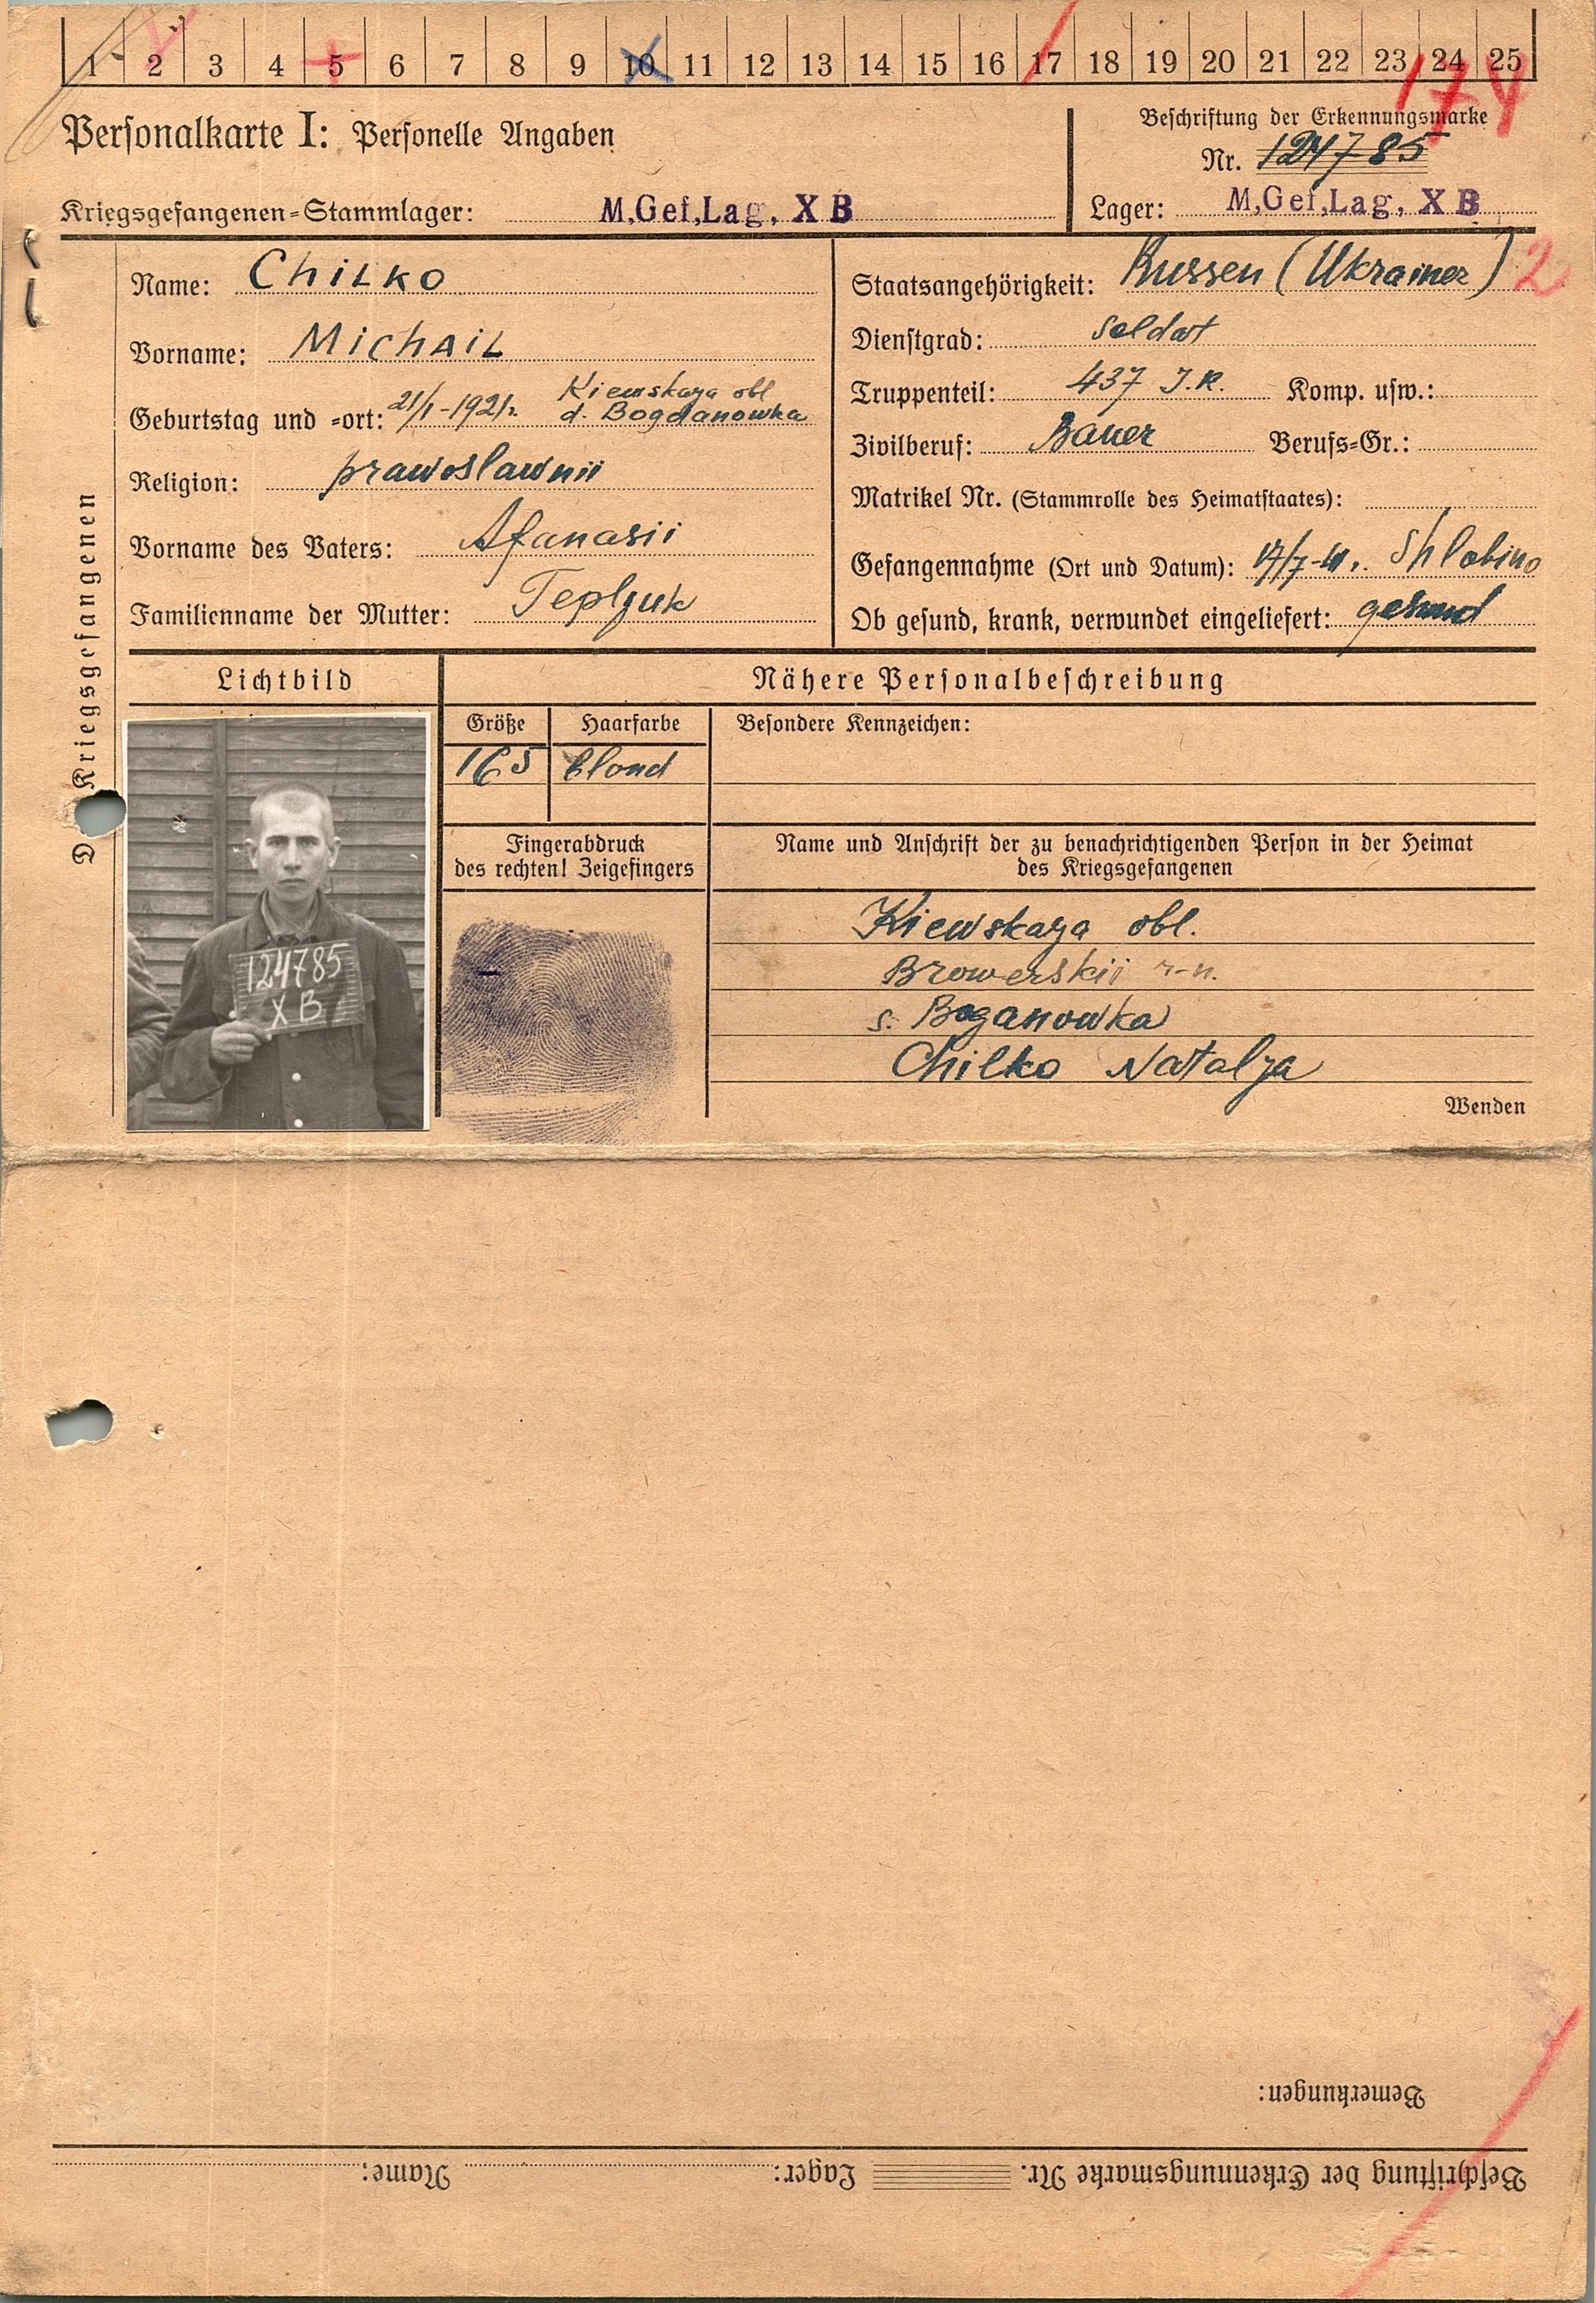 1 2 3 4 5 6 7 8 9 10 11 12 13 14 15 16 17 18 19 20 21 22 23 24 25
174
Personalkarte I: Personelle Angaben
Beschriftung der Erkennungsmarke
Nr. 124785
Kriegsgefangenen=Stammlager: M,Gef,Lag, X B
Lager: M,Gef,Lag, X B
Des Kriegsgefangenen
Name: Chilko
Vorname: Michail
Geburtstag und =ort: 21/1-1921. Kiewskaya obl
d. Bogdanowka
Religion: prawoslawnii
Vorname des Vaters: Afanasii
Familienname der Mutter: Tepljuk
Staatsangehörigkeit: Russen (Ukrainer) 2
Dienstgrad: Soldat
Truppenteil: 437 J.R. Komp. usw.:
Zivilberuf: Bauer Berufs=Gr.:
Matrikel Nr. (Stammrolle des Heimatstaates):
Gefangennahme (Ort und Datum): 17/7-41. Shlobino
Ob gesund, krank, verwundet eingeliefert: gesund
Lichtbild
Nähere Personalbeschreibung
Größe Haarfarbe Besondere Kennzeichen:
165 blond
124785
X B
Fingerabdruck
des rechten! Zeigefingers
Name und Anschrift der zu benachrichtigenden Person in der Heimat
des Kriegsgefangenen
Kiewskaya obl.
Browerskii r-n.
s. Boganowka
Chilko Natalja
Wenden
Bemerkungen:
Beschriftung der Erkennungsmarke Nr. Lager: Name: